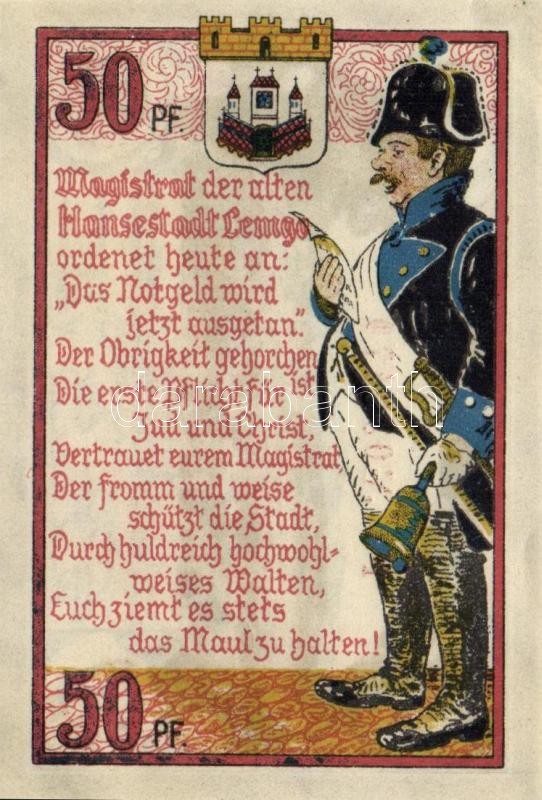 50 PF.
Magistrat der alten
Hansestadt Lemgo
ordenet heute an:
„Das Notgeld wird
jetzt ausgetan.“
Der Obrigkeit gehorchen ist
Die erste Pflicht für
Jud und Christ,
Vertrauet eurem Magistrat
Der fromm und weise
schützt die Stadt,
Durch huldreich hochwohl-
weises Walten,
Euch ziemt es stets
das Maul zu halten!
50 PF.
darabanth